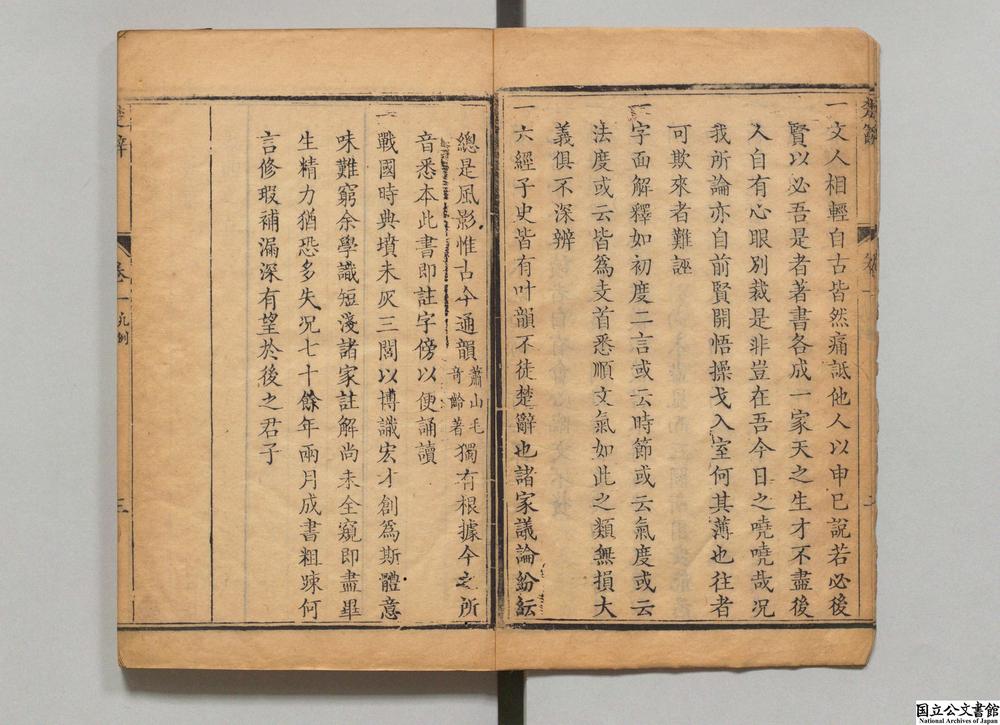 一文人相輕自古皆然痛詆他人以申已說若必後
賢以必吾是者著書各成一家天之生才不盡後
人自有心眼別裁是非豈在吾今日之嘵嘵哉况
我所論亦自前賢開悟操戈入室何其薄也往者
可欺來者難誣
一字面解釋如初度二言或云時節或云氣度或云
法度或云皆爲支首悉順文氣如此之類無損大
義俱不深辨
一六經子史皆有叶韻不徒楚辭也諸家議論紛紜
總是風影惟古今通韻蕭山毛奇齡著獨有根據今之所
音悉本此書即註字傍以便誦讀
一戰國時典墳未灰三閭以博識宏才創爲斯體意
味難窮余學識短淺諸家註解尚未全窺即盡畢
生精力猶恐多失况七十餘年兩月成書粗踈何
言修瑕補漏深有望於後之君子
楚辭
卷一凡例
三
国立公文書館
National Archives of Japan